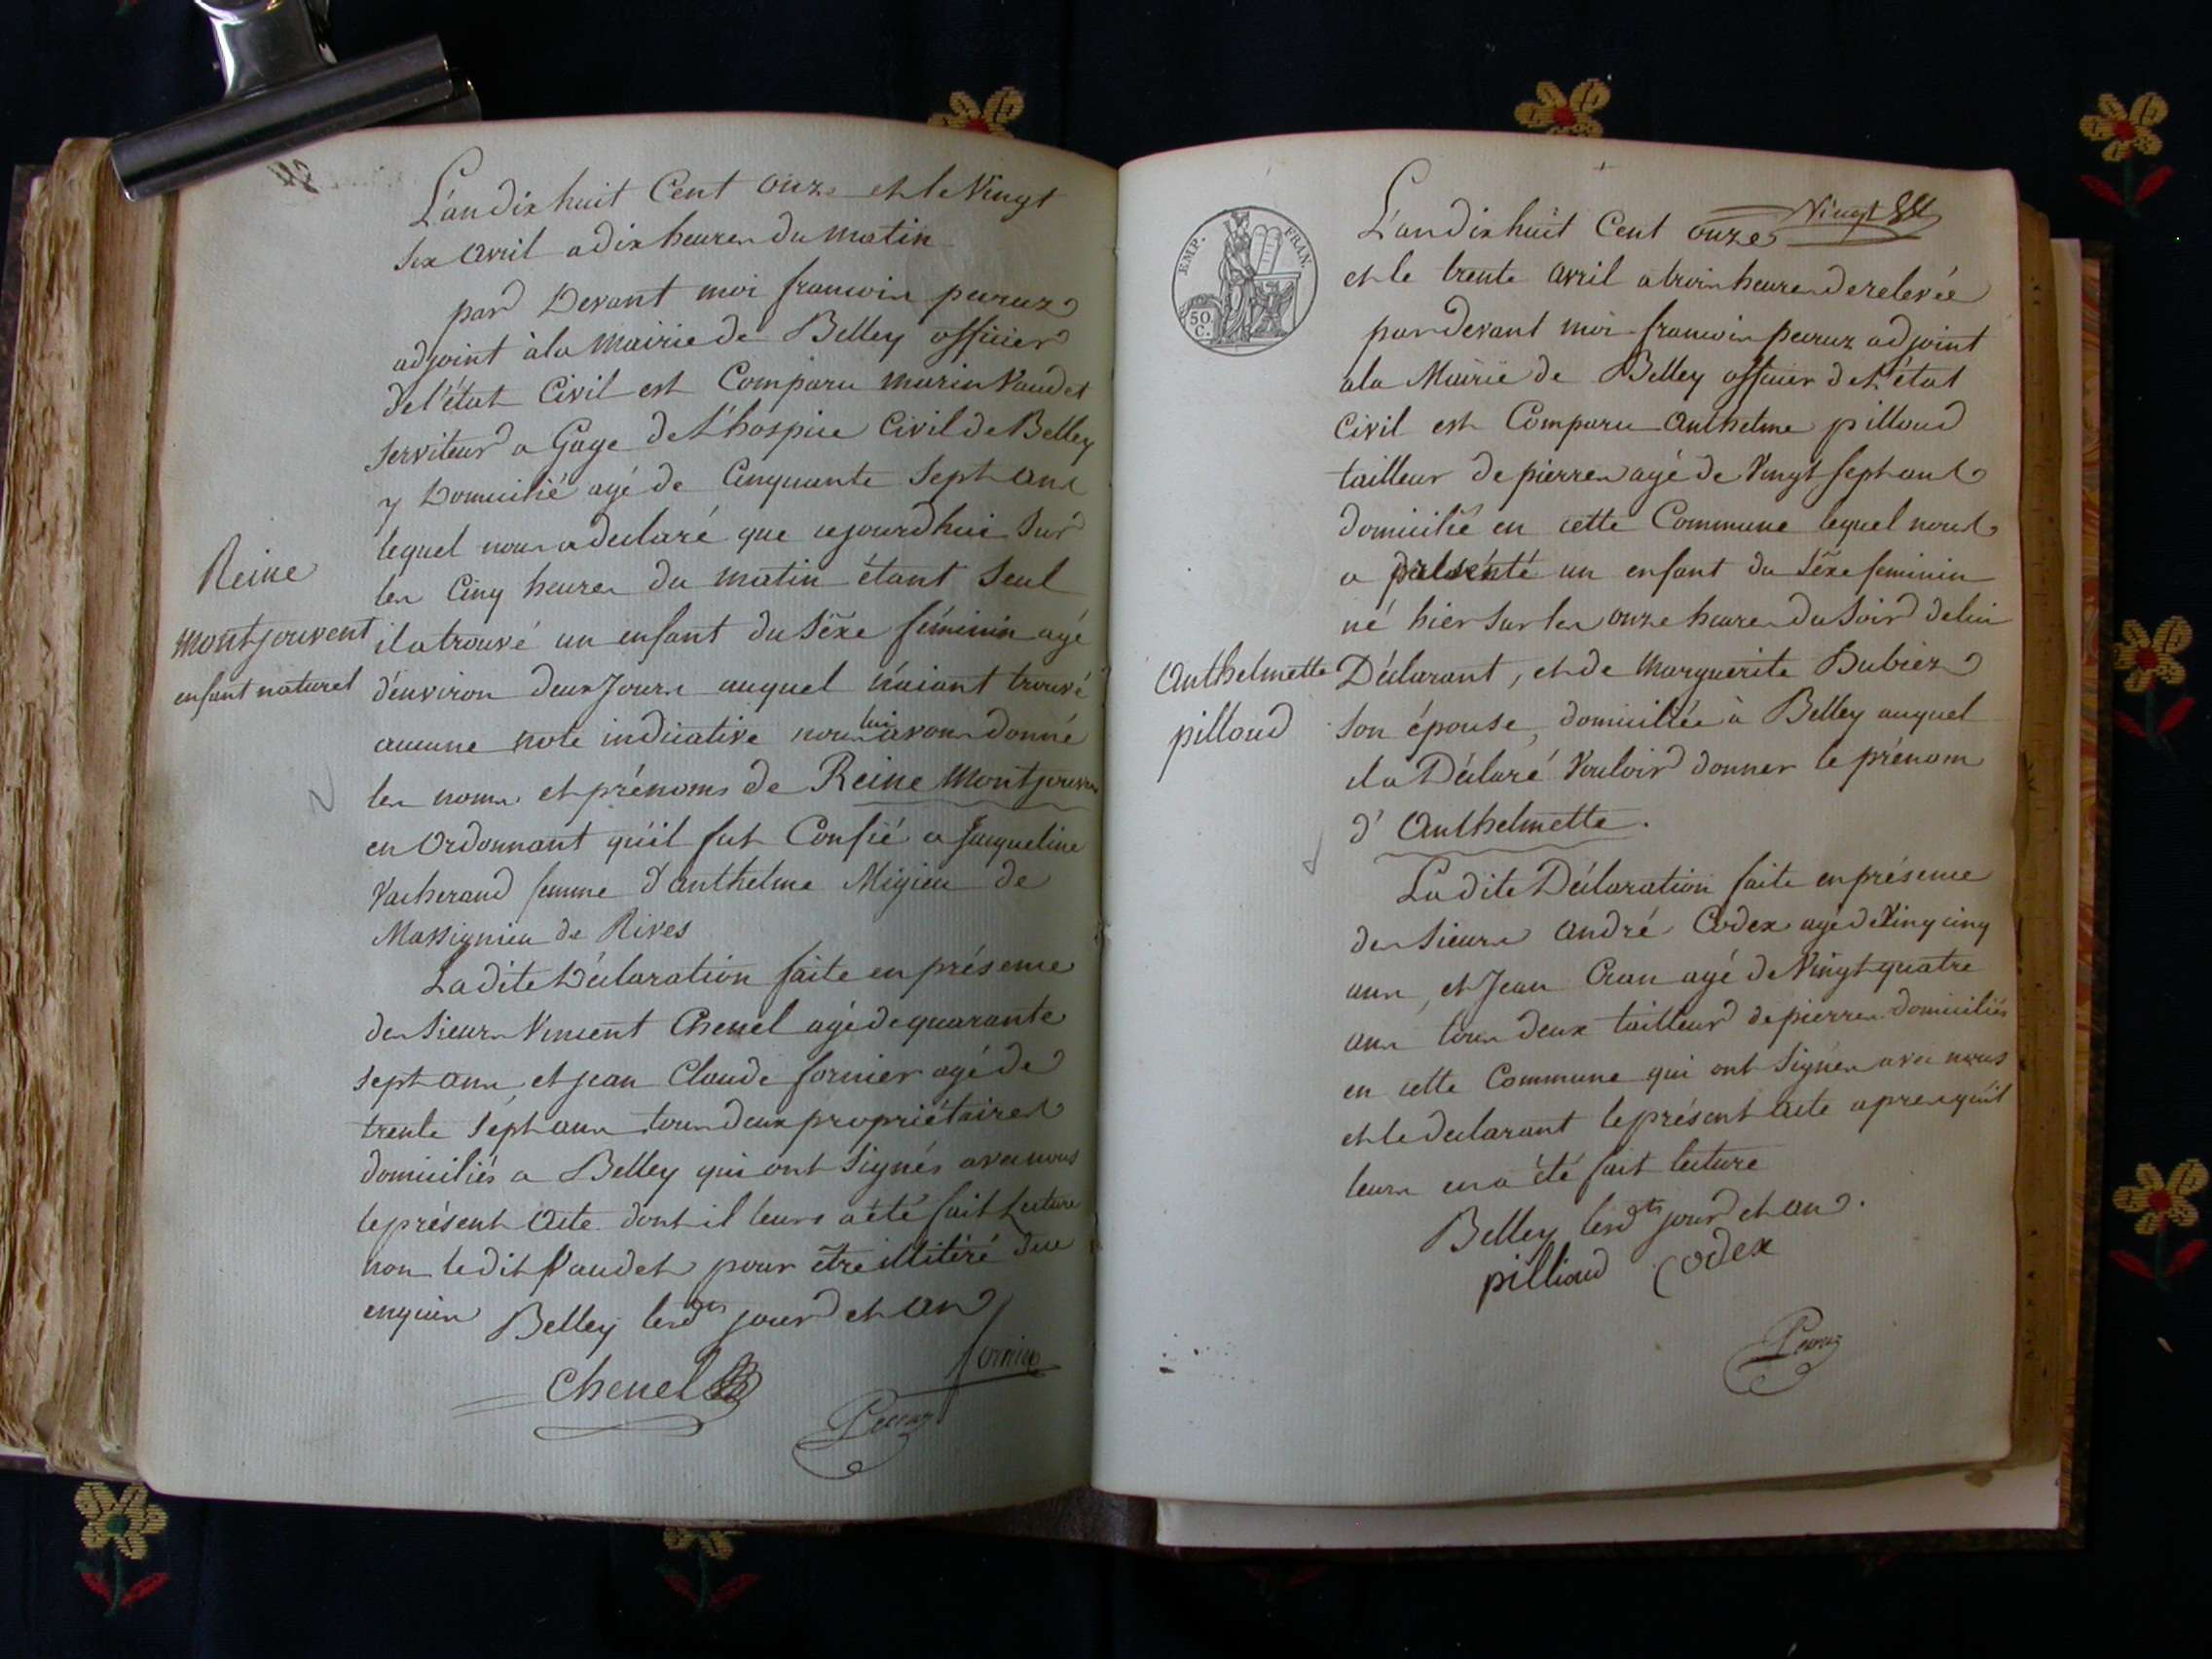 L'an dix huit Cent onze et le Vingt
Six avril a dix heures du matin
par Devant moi francois peruz
adjoint à la mairie de Belley officier
de l'état Civil est Comparu marin Vaudet
Serviteur a Gage de L'hospice Civil de Belley
y Domicilié agé de Cinquante Sept ans
lequel nous a declaré que cejourd'hui Sur
les Cinq heures du matin étant Seul
Reine
montjouvent
enfant naturel
il a trouvé un enfant du Sèxe féminin agé
d'environ deux Jours auquel n'aiant trouvé
aucune note indicative nous lui avons donné
les noms et prénoms de Reine Montjouvent
en Ordonnant qu'il fut Confié a Jacqueline
Vacherand femme d'anthelme Migieu de
Massignieu de Rives
La dite Déclaration faite en présence
des Sieurs Vincent Chenel agé de quarante
sept ans et jean Claude fornier agé de
trente Sept ans tous deux propriétaires
domiciliés a Belley qui ont Signés avec nous
le présent acte dont il leurs a été fait Lecture
non le dit Vaudet pour être illitéré de ce
enquis Belley lesdts jour et an
Chenel
fornier
Peruz
EMP. FRAN.
50 C.
Vingt
L'an dix huit Cent onze
et le trente avril a trois heures de relevée
par devant moi francois peruz adjoint
a la Mairie de Belley officier de L'état
Civil est Comparu Anthelme pilloud
tailleur de pierres agé de Vingt Sept ans
domicilié en cette Commune lequel nous
a présenté un enfant du Sèxe feminin
né hier Sur les onze heures du Soir de lui
Anthelmette
pilloud
Déclarant, et de Marguerite Dubiez
Son épouse, domiciliée à Belley auquel
il a Déclaré Vouloir donner le prénom
d'Anthelmette.
La dite Déclaration faite en présence
des Sieurs André Codex agé de Vingcinq
ans, et Jean Cran agé de Vingt quatre
ans tous deux tailleur de pierres domiciliés
en cette Commune qui ont Signés avec nous
et le declarant le présent acte apres qu'il
leurs en a été fait lecture
Belley lesdts jour et an.
pillioud Codex
Peruz